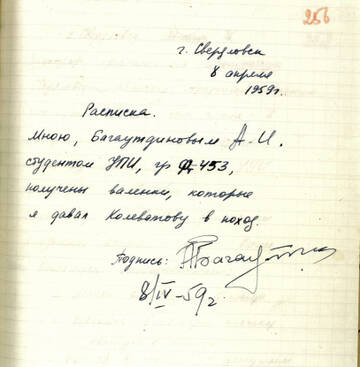 256
г. Свердловск
8 апреля
1959 г.
Расписка.
Мною, Багаутдиновым А. И.
студентом УПИ, гр Ф-453,
получены валенки, которые
я давал Колеватову в поход.
Подпись:
8/IV-59 г.